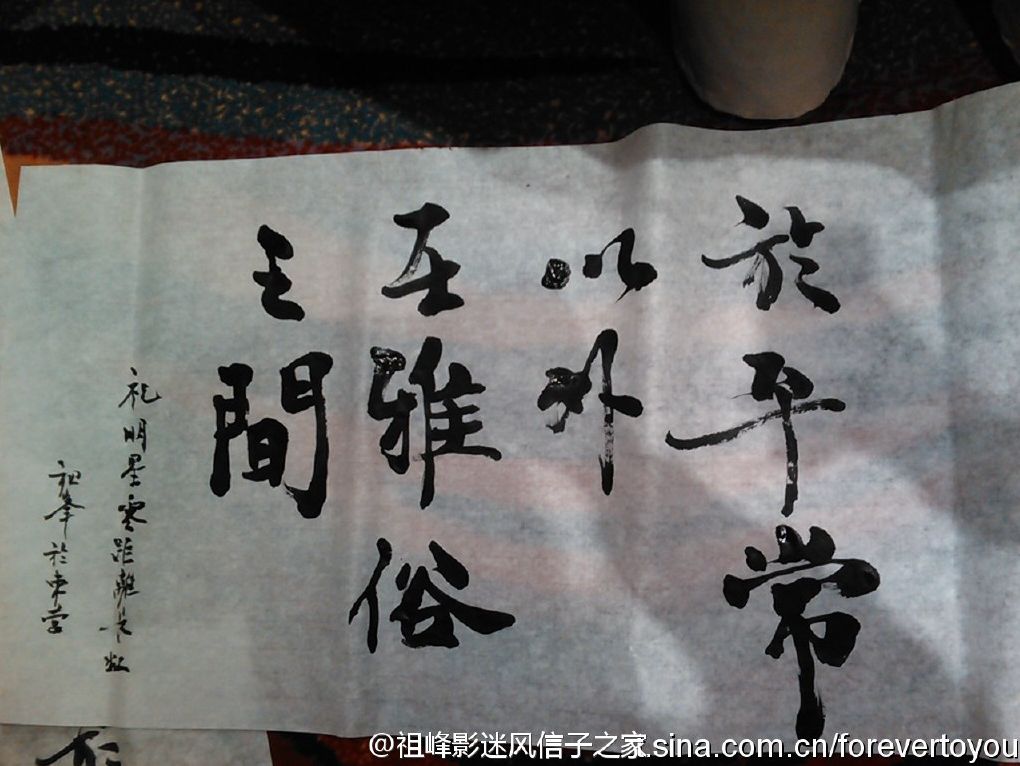 於平常
以外
在雅俗
之間
祝明星零距離长虹
祖峯於東莞
於
@祖峰影迷风信子之家
.sina.com.cn/forevertoyou